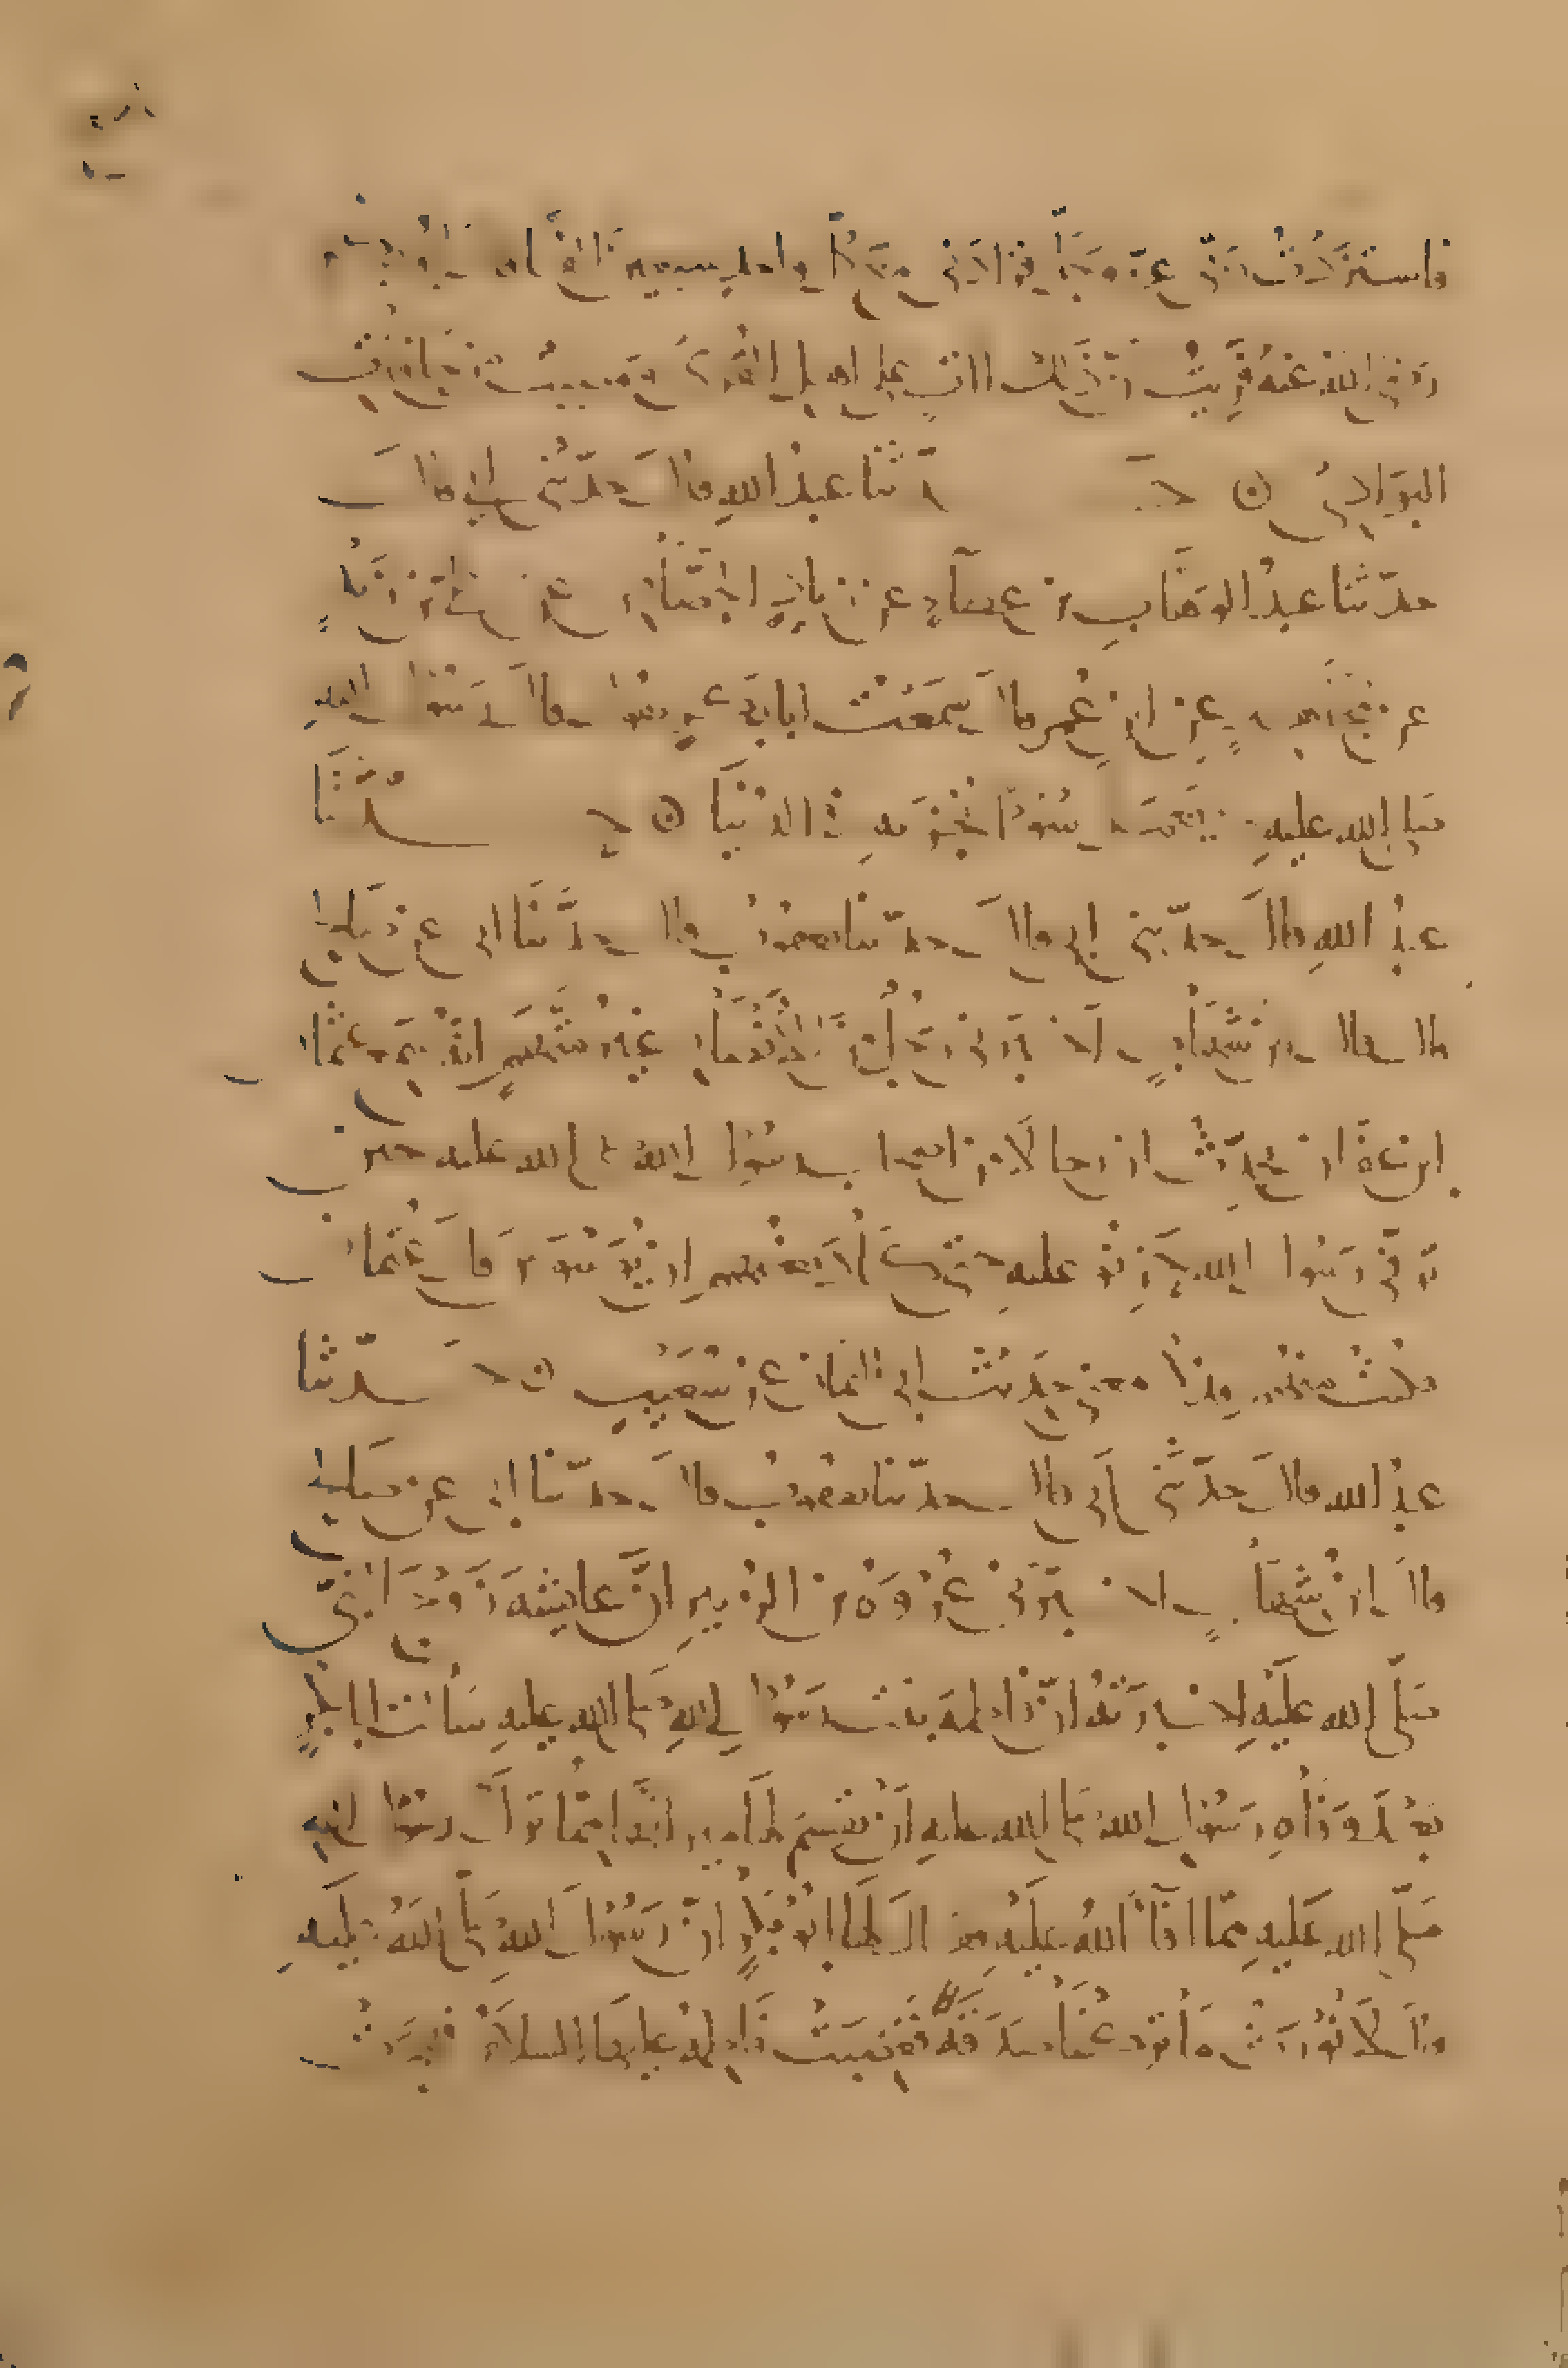 فاستزدت ربي عز وجل فزادني مع كل واحد سبعين الفا قال ابو بكر
رضي الله عنه فرايت ان ذلك اات على اهل القرى ومصيب من حافات
البوادي ن حدثنا عبد الله قال حدثني ابي قال
حدثنا عبد الوهاب بن عطاء عن زياد الجصاص عن علي بن زيد
عن مجاهد عن ابن عمر قال سمعت ابا بكر يقول قال رسول الله
صلى الله عليه من يعمل سوءا يجز به في الدنيا ن حدثنا
عبد الله قال حدثني ابي قال حدثنا يعقوب قال حدثنا ابي عن صالح
قال قال ابن شهاب اخبرني رجل من الانصار غير متهم انه سمع عثمان
ابن عفان يحدث ان رجالا من اصحاب رسول الله صلى الله عليه حين
توفي رسول الله حزنوا عليه حتى كاد بعضهم ان يوسوس قال عثمان
فكنت منهم فذكر معنى حديث ابي اليمان عن شعيب ن حدثنا
عبد الله قال حدثني ابي قال حدثنا يعقوب قال حدثنا ابي عن صالح
قال ابن شهاب اخبرني عروة بن الزبير ان عايشة زوج النبي
صلى الله عليه اخبرته ان فاطمة بنت رسول الله صلى الله عليه سألت ابا بكر
بعد وفاة رسول الله صلى الله عليه ان يقسم لها ميراثها مما ترك رسول الله
صلى الله عليه مما افاء الله عليه فقال لها ابو بكر ان رسول الله صلى الله عليه
قال لا نورث ما تركنا صدقة فغضبت فاطمة عليها السلام فهجرت